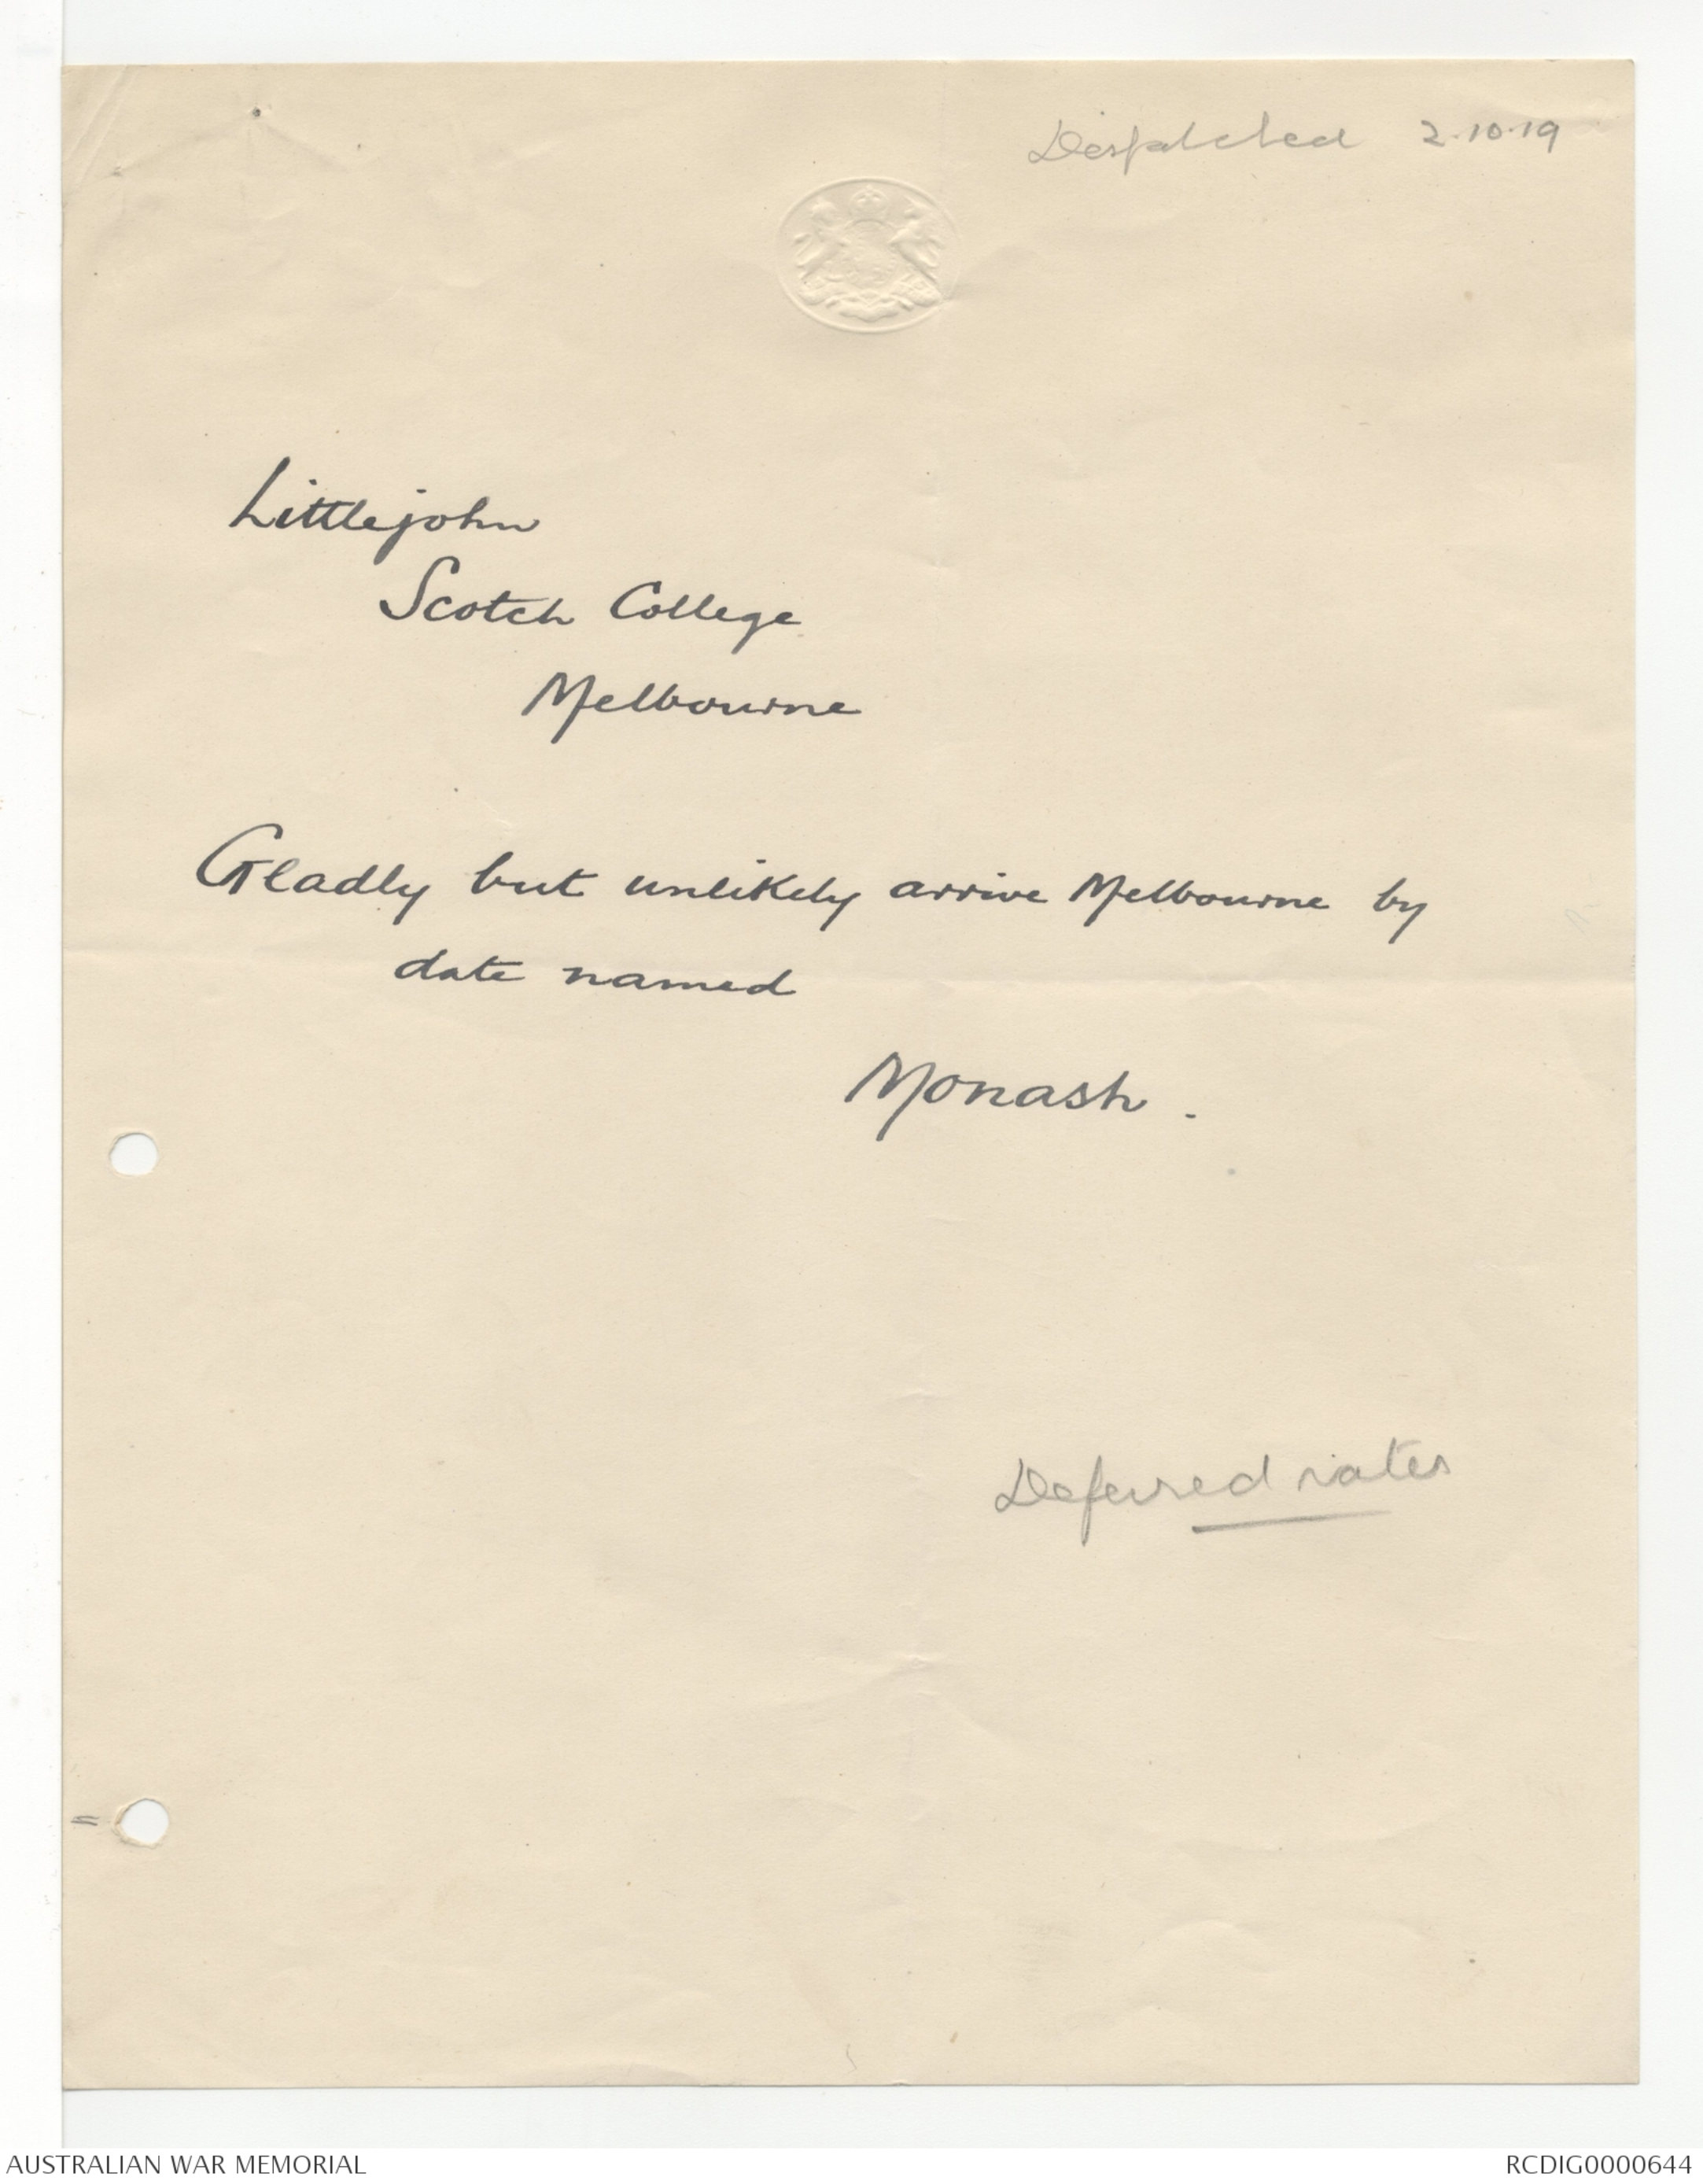 Despatched 2.10.19
Littlejohn
Scotch College
Melbourne
Gladly but unlikely arrive Melbourne by
date named
Monash.
Deferred rates
AUSTRALIAN WAR MEMORIAL
RCDIG0000644